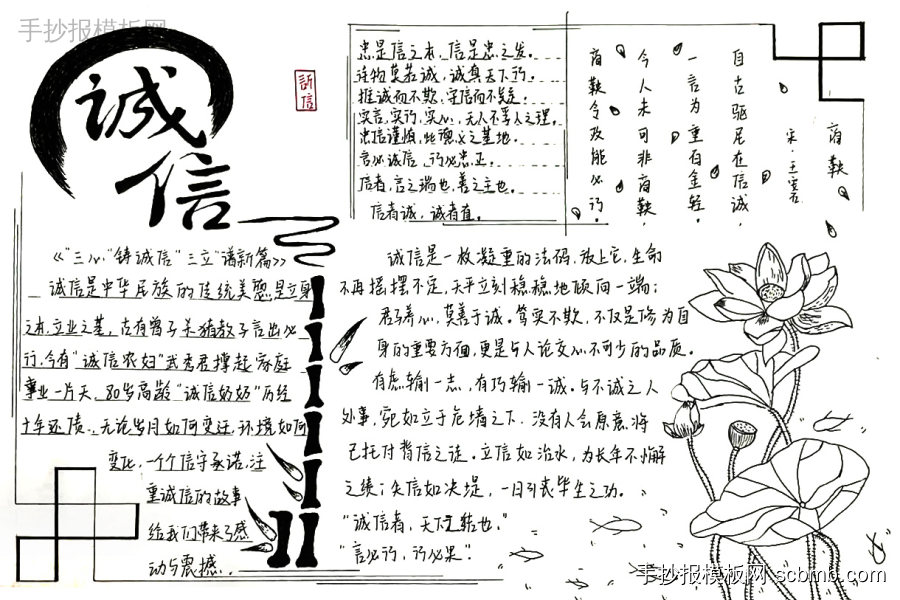 手抄报模板网
诚
信
诉信
忠是信之本，信是忠之发。
诸物莫若诚，诚真天下行。
推诚而不欺，守信而不疑。
实言，实行，实心，无人不孚人之理。
忠信谨慎，此德义之基地。
言必诚信，行必忠正。
信者，言之端也，善之主也。
信者诚，诚者直。
商鞅
宋·王
自古驱民在信诚，
一言为重百金轻。
今人未可非商鞅，
商鞅令政能必行。
《“三心”铸诚信“三立”谱新篇》
诚信是中华民族的传统美德，是立身
之本，立业之基，古有曾子杀猪教子言出必
行，今有“诚信农妇”武秀君撑起家庭
事业一片天，80岁高龄“诚信奶奶”历经
十年还债.，无论岁月如何变迁，环境如何
变化，一个个信守承诺，注
重诚信的故事
给我们带来了感
动与震撼..
诚信是一枚凝重的法码，放上它，生命
不再摇摆不定，天平立刻稳稳地倾向一端；
君子养心，莫善于诚。笃实不欺，不仅是修为自
身的重要方面，更是与人论交心不可少的品质。
有虑输一志，有巧输一诚。与不诚之人
处事，宛如立于危墙之下，没有人会愿意将
己托付背信之徒。立信如治水，为长年不懈
之绩；失信如决堤，一日引丧毕生之功。
“诚信者，天下之结也，”
“言必行，行必果”.
手抄报模板网 scbmb.com